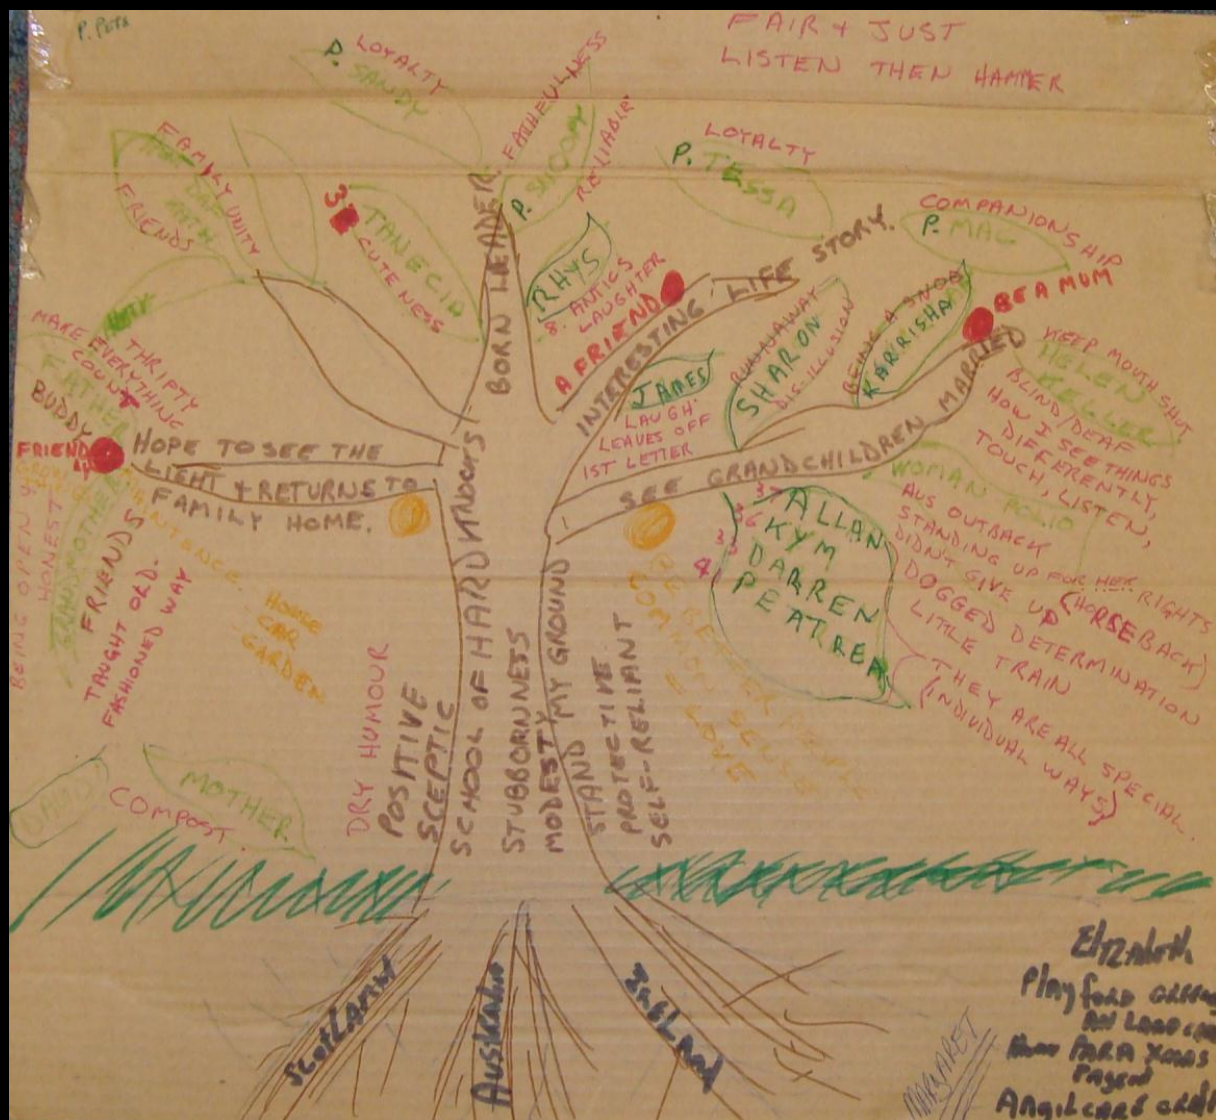 P. PETS
FAIR + JUST
LISTEN THEN HAMMER
LOYALTY
P. SANDY
FATHEULNESS
P. SNOOPY
RELIABLE
LOYALTY
P. TESSA
COMPANIONSHIP
P. MAC
FAMILY UNITY
FRIENDS
3
TANECIA
CUTENESS
BORN LEADER
RHYS
8. ANTICS
LAUGHTER
A FRIEND
INTERESTING LIFE STORY.
JAMES
LAUGH
LEAVES OFF
1ST LETTER
RUNNAWAY
SHARON
DIS-ILLUSION
BEING A SNOB
KARRISHA
BE A MUM
SEE GRANDCHILDREN MARRIED
KEEP MOUTH SHUT
HELEN
KELLER
BLIND/DEAF
HOW I SEE THINGS
DIFFERENTLY,
TOUCH, LISTEN,
WOMAN POLIO
AUS OUTBACK
STANDING UP FOR HER RIGHTS
DIDN'T GIVE UP (HORSEBACK)
DOGGED DETERMINATION
LITTLE TRAIN
THEY ARE ALL SPECIAL.
(INDIVIDUAL WAYS)
37 ALLAN
36 KYM
33 DARREN
4 PEATREA
THRIFTY
MAKE EVERYTHING
COUNT
FATHER
BUDDY
FRIEND
HOPE TO SEE THE
LIGHT & RETURNS TO
FAMILY HOME.
BEING OPEN &
HONEST
GRANDMOTHER
FRIENDS
TAUGHT ORD.
FASHIONED WAY
HOME
CAR
GARDEN
COMMON SENSE
& LOVE
DRY HUMOUR
POSITIVE
SCEPTIC
SCHOOL OF HARD KNOCKS
STUBBORNNESS
MODESTY
STAND MY GROUND
PROTECTIVE
SELF-RELIANT
MOTHER
COMPOST.
SCOTLAND
Australia
ENGLAND
MARGARET
Elizabeth
Playford
PARA XMAS